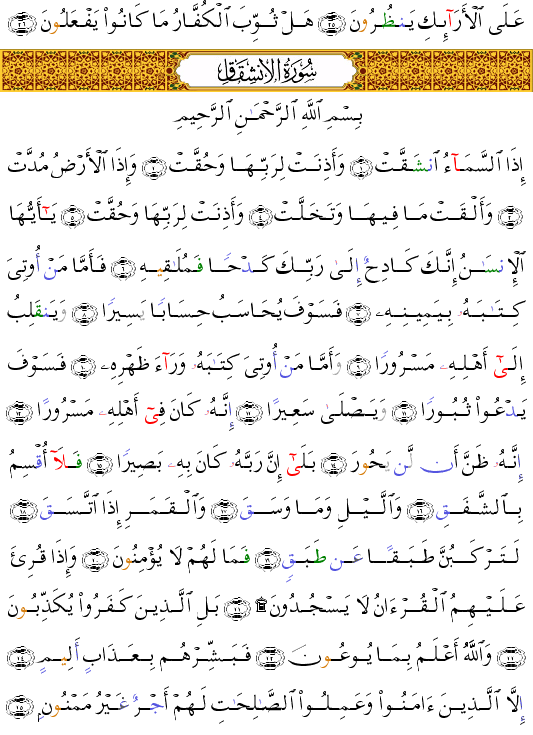 عَلَى ٱلْأَرَآئِكِ يَنظُرُونَ ٣٥ هَلْ ثُوِّبَ ٱلْكُفَّارُ مَا كَانُوا۟ يَفْعَلُونَ ٣٦
سُورَةُ الِانشِقَاقِ
بِسْمِ ٱللَّهِ ٱلرَّحْمَـٰنِ ٱلرَّحِيمِ
إِذَا ٱلسَّمَآءُ ٱنشَقَّتْ ١ وَأَذِنَتْ لِرَبِّهَا وَحُقَّتْ ٢ وَإِذَا ٱلْأَرْضُ مُدَّتْ
٣ وَأَلْقَتْ مَا فِيهَا وَتَخَلَّتْ ٤ وَأَذِنَتْ لِرَبِّهَا وَحُقَّتْ ٥ يَـٰٓأَيُّهَا
ٱلْإِنسَـٰنُ إِنَّكَ كَادِحٌ إِلَىٰ رَبِّكَ كَدْحًا فَمُلَـٰقِيهِ ٦ فَأَمَّا مَنْ أُوتِىَ
كِتَـٰبَهُۥ بِيَمِينِهِۦ ٧ فَسَوْفَ يُحَاسَبُ حِسَابًا يَسِيرًا ٨ وَيَنقَلِبُ
إِلَىٰٓ أَهْلِهِۦ مَسْرُورًا ٩ وَأَمَّا مَنْ أُوتِىَ كِتَـٰبَهُۥ وَرَآءَ ظَهْرِهِۦ ١٠ فَسَوْفَ
يَدْعُوا۟ ثُبُورًا ١١ وَيَصْلَىٰ سَعِيرًا ١٢ إِنَّهُۥ كَانَ فِىٓ أَهْلِهِۦ مَسْرُورًا ١٣
إِنَّهُۥ ظَنَّ أَن لَّن يَحُورَ ١٤ بَلَىٰٓ إِنَّ رَبَّهُۥ كَانَ بِهِۦ بَصِيرًا ١٥ فَلَآ أُقْسِمُ
بِٱلشَّفَقِ ١٦ وَٱلَّيْلِ وَمَا وَسَقَ ١٧ وَٱلْقَمَرِ إِذَا ٱتَّسَقَ ١٨
لَتَرْكَبُنَّ طَبَقًا عَن طَبَقٍ ١٩ فَمَا لَهُمْ لَا يُؤْمِنُونَ ٢٠ وَإِذَا قُرِئَ
عَلَيْهِمُ ٱلْقُرْءَانُ لَا يَسْجُدُونَ ۩ ٢١ بَلِ ٱلَّذِينَ كَفَرُوا۟ يُكَذِّبُونَ
٢٢ وَٱللَّهُ أَعْلَمُ بِمَا يُوعُونَ ٢٣ فَبَشِّرْهُم بِعَذَابٍ أَلِيمٍ ٢٤
إِلَّا ٱلَّذِينَ ءَامَنُوا۟ وَعَمِلُوا۟ ٱلصَّـٰلِحَـٰتِ لَهُمْ أَجْرٌ غَيْرُ مَمْنُونٍۭ ٢٥